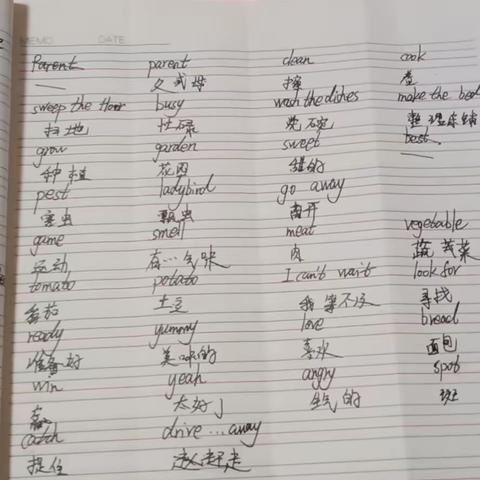 MEMO DATE
parent parent clean cook
父或母 擦 煮
sweep the floor busy wash the dishes make the bed
扫地 忙碌 洗碗 整理床铺
grow garden sweet best
种植 花园 甜的
pest ladybird go away
害虫 瓢虫 离开
game smell meat vegetable
运动 有…气味 肉 蔬菜
tomato potato I can't wait look for
番茄 土豆 我等不及 寻找
ready yummy love bread
准备好 美味的 喜欢 面包
win yeah angry spot
赢 太好了 生气的 斑
catch drive...away
捉住 赶走